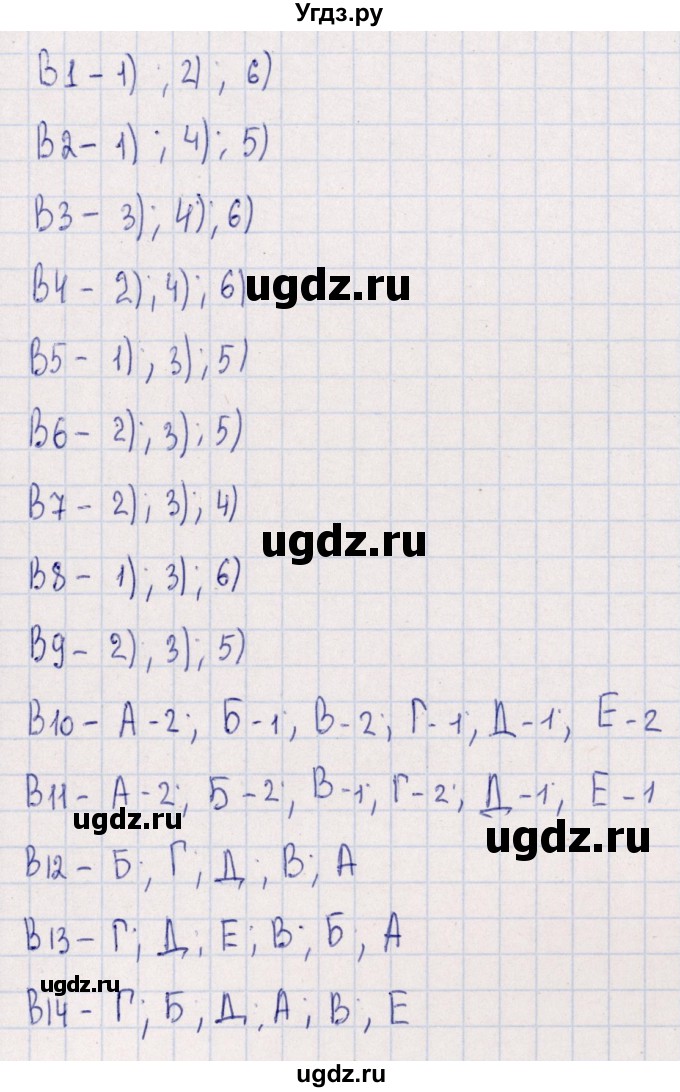 Угдз.ру
В1 - 1) ; 2) ; 6)
В2 - 1) ; 4) ; 5)
В3 - 3) ; 4) ; 6)
В4 - 2) ; 4) ; 6)
ugdz.ru
В5 - 1) ; 3) ; 5)
В6 - 2) ; 3) ; 5)
В7 - 2) ; 3) ; 4)
ugdz.ru
В8 - 1) ; 3) ; 6)
В9 - 2) ; 3) ; 5)
В10 - А - 2; Б - 1; В - 2; Г - 1; Д - 1; Е - 2
В11 - А - 2; Б - 2; В - 1; Г - 2; Д - 1; Е - 1
ugdz.ru
ugdz.ru
В12 - Б; Г; Д; В; А
В13 - Г; Д; Е; В; Б; А
ugdz.ru
В14 - Г; Б; Д; А; В; Е
ugdz.ru